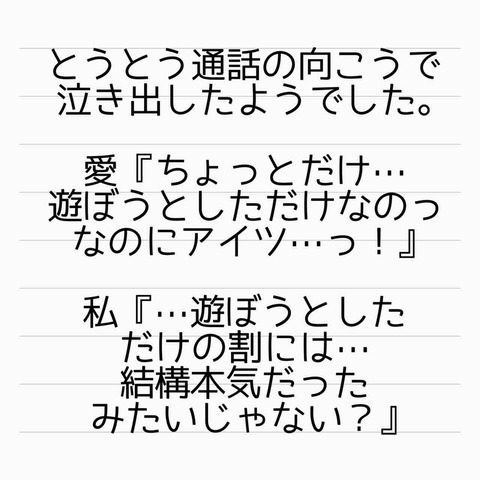 とうとう通話の向こうで
泣き出したようでした。
愛『ちょっとだけ…
遊ぼうとしただけなのっ
なのにアイツ…っ！』
私『…遊ぼうとした
だけの割には…
結構本気だった
みたいじゃない？』